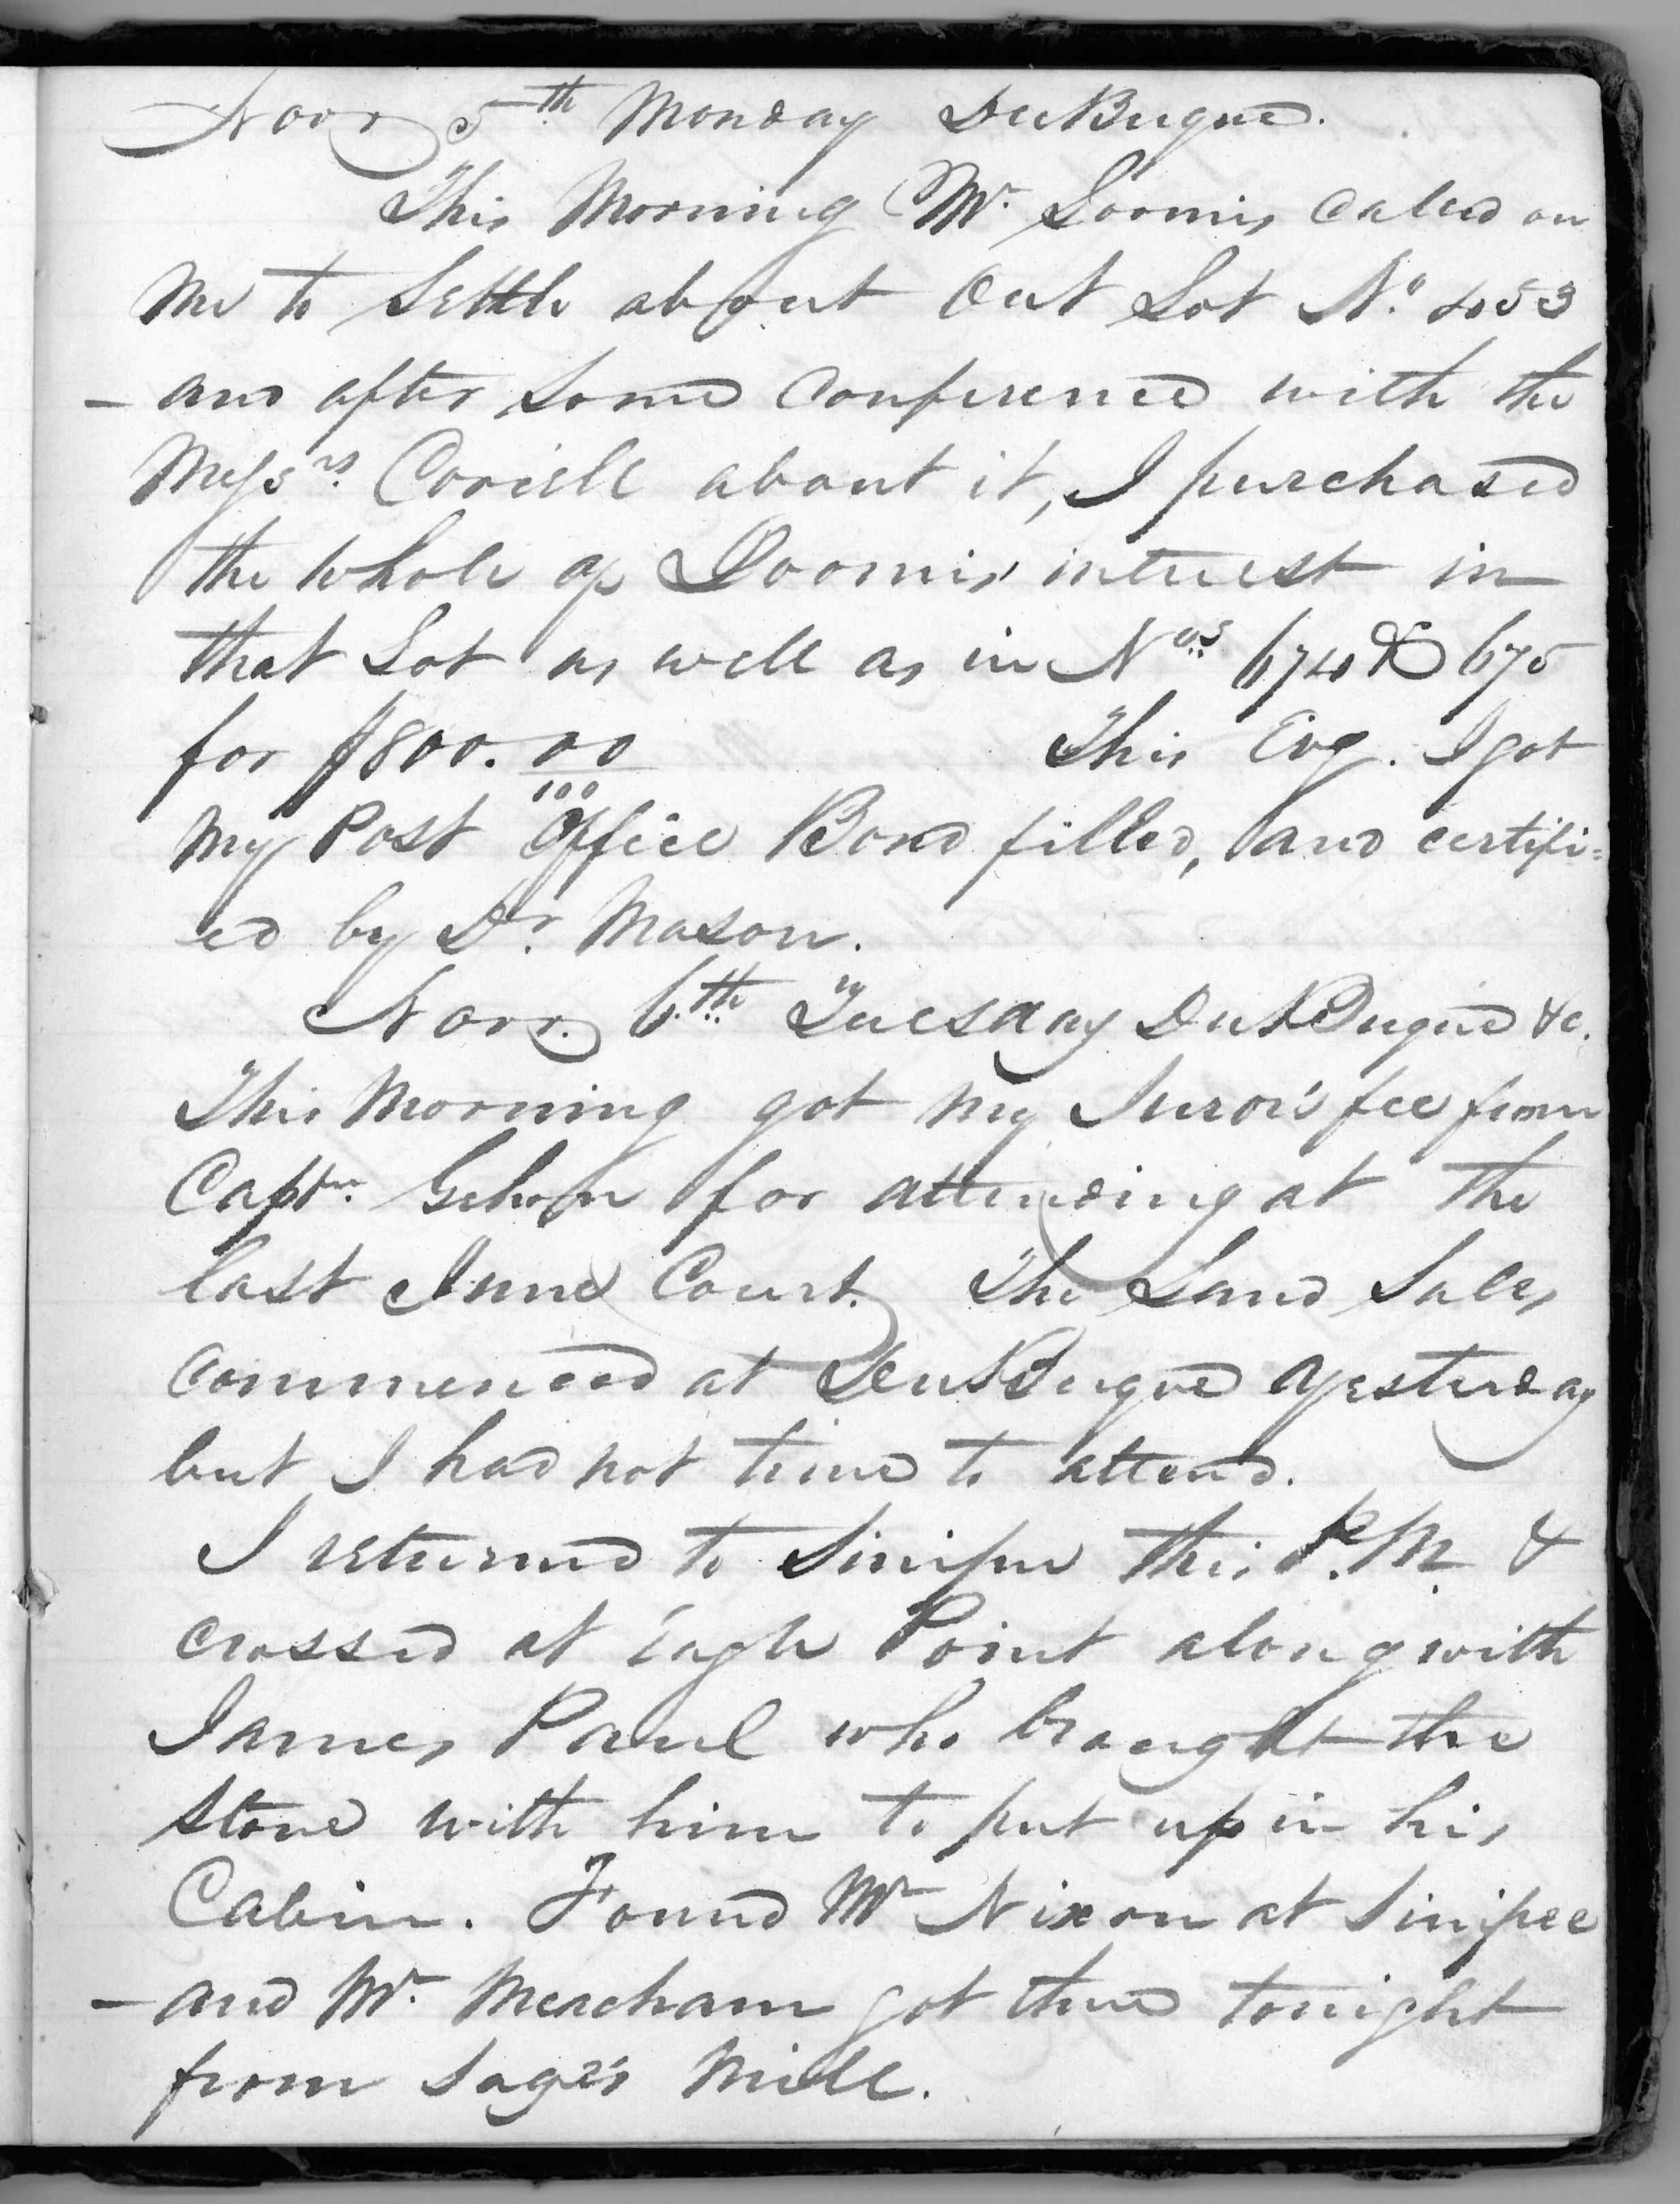 Novr 5th Monday DuBuque.
This Morning Mr. Loomis Called on
me to Settle about Out Lot No. 453
– and after Some Conference with the
Messrs. Coriell about it, I purchased
the Whole of Loomis' interest in
that Lot as well as in Nos. 674 & 675
for $800.00/100 This Evg. I got
my Post Office Bond filled, and certifi=
ed by Dr. Mason.
Novr. 6th Tuesday DuBuque &c.
This Morning got my Juror's fee from
Captn. Gehon for attending at the
last June Court. The Land Sales
Commenced at DuBuque Yesterday
but I had not time to attend.
I returned to Sinipee this P.M. &
crossed at Eagle Point along with
James Paul who brought the
stove with him to put up in his
Cabin. Found Mr Nixon at Sinipee
– and Mr. Meacham got there tonight
from Sage's Mill.